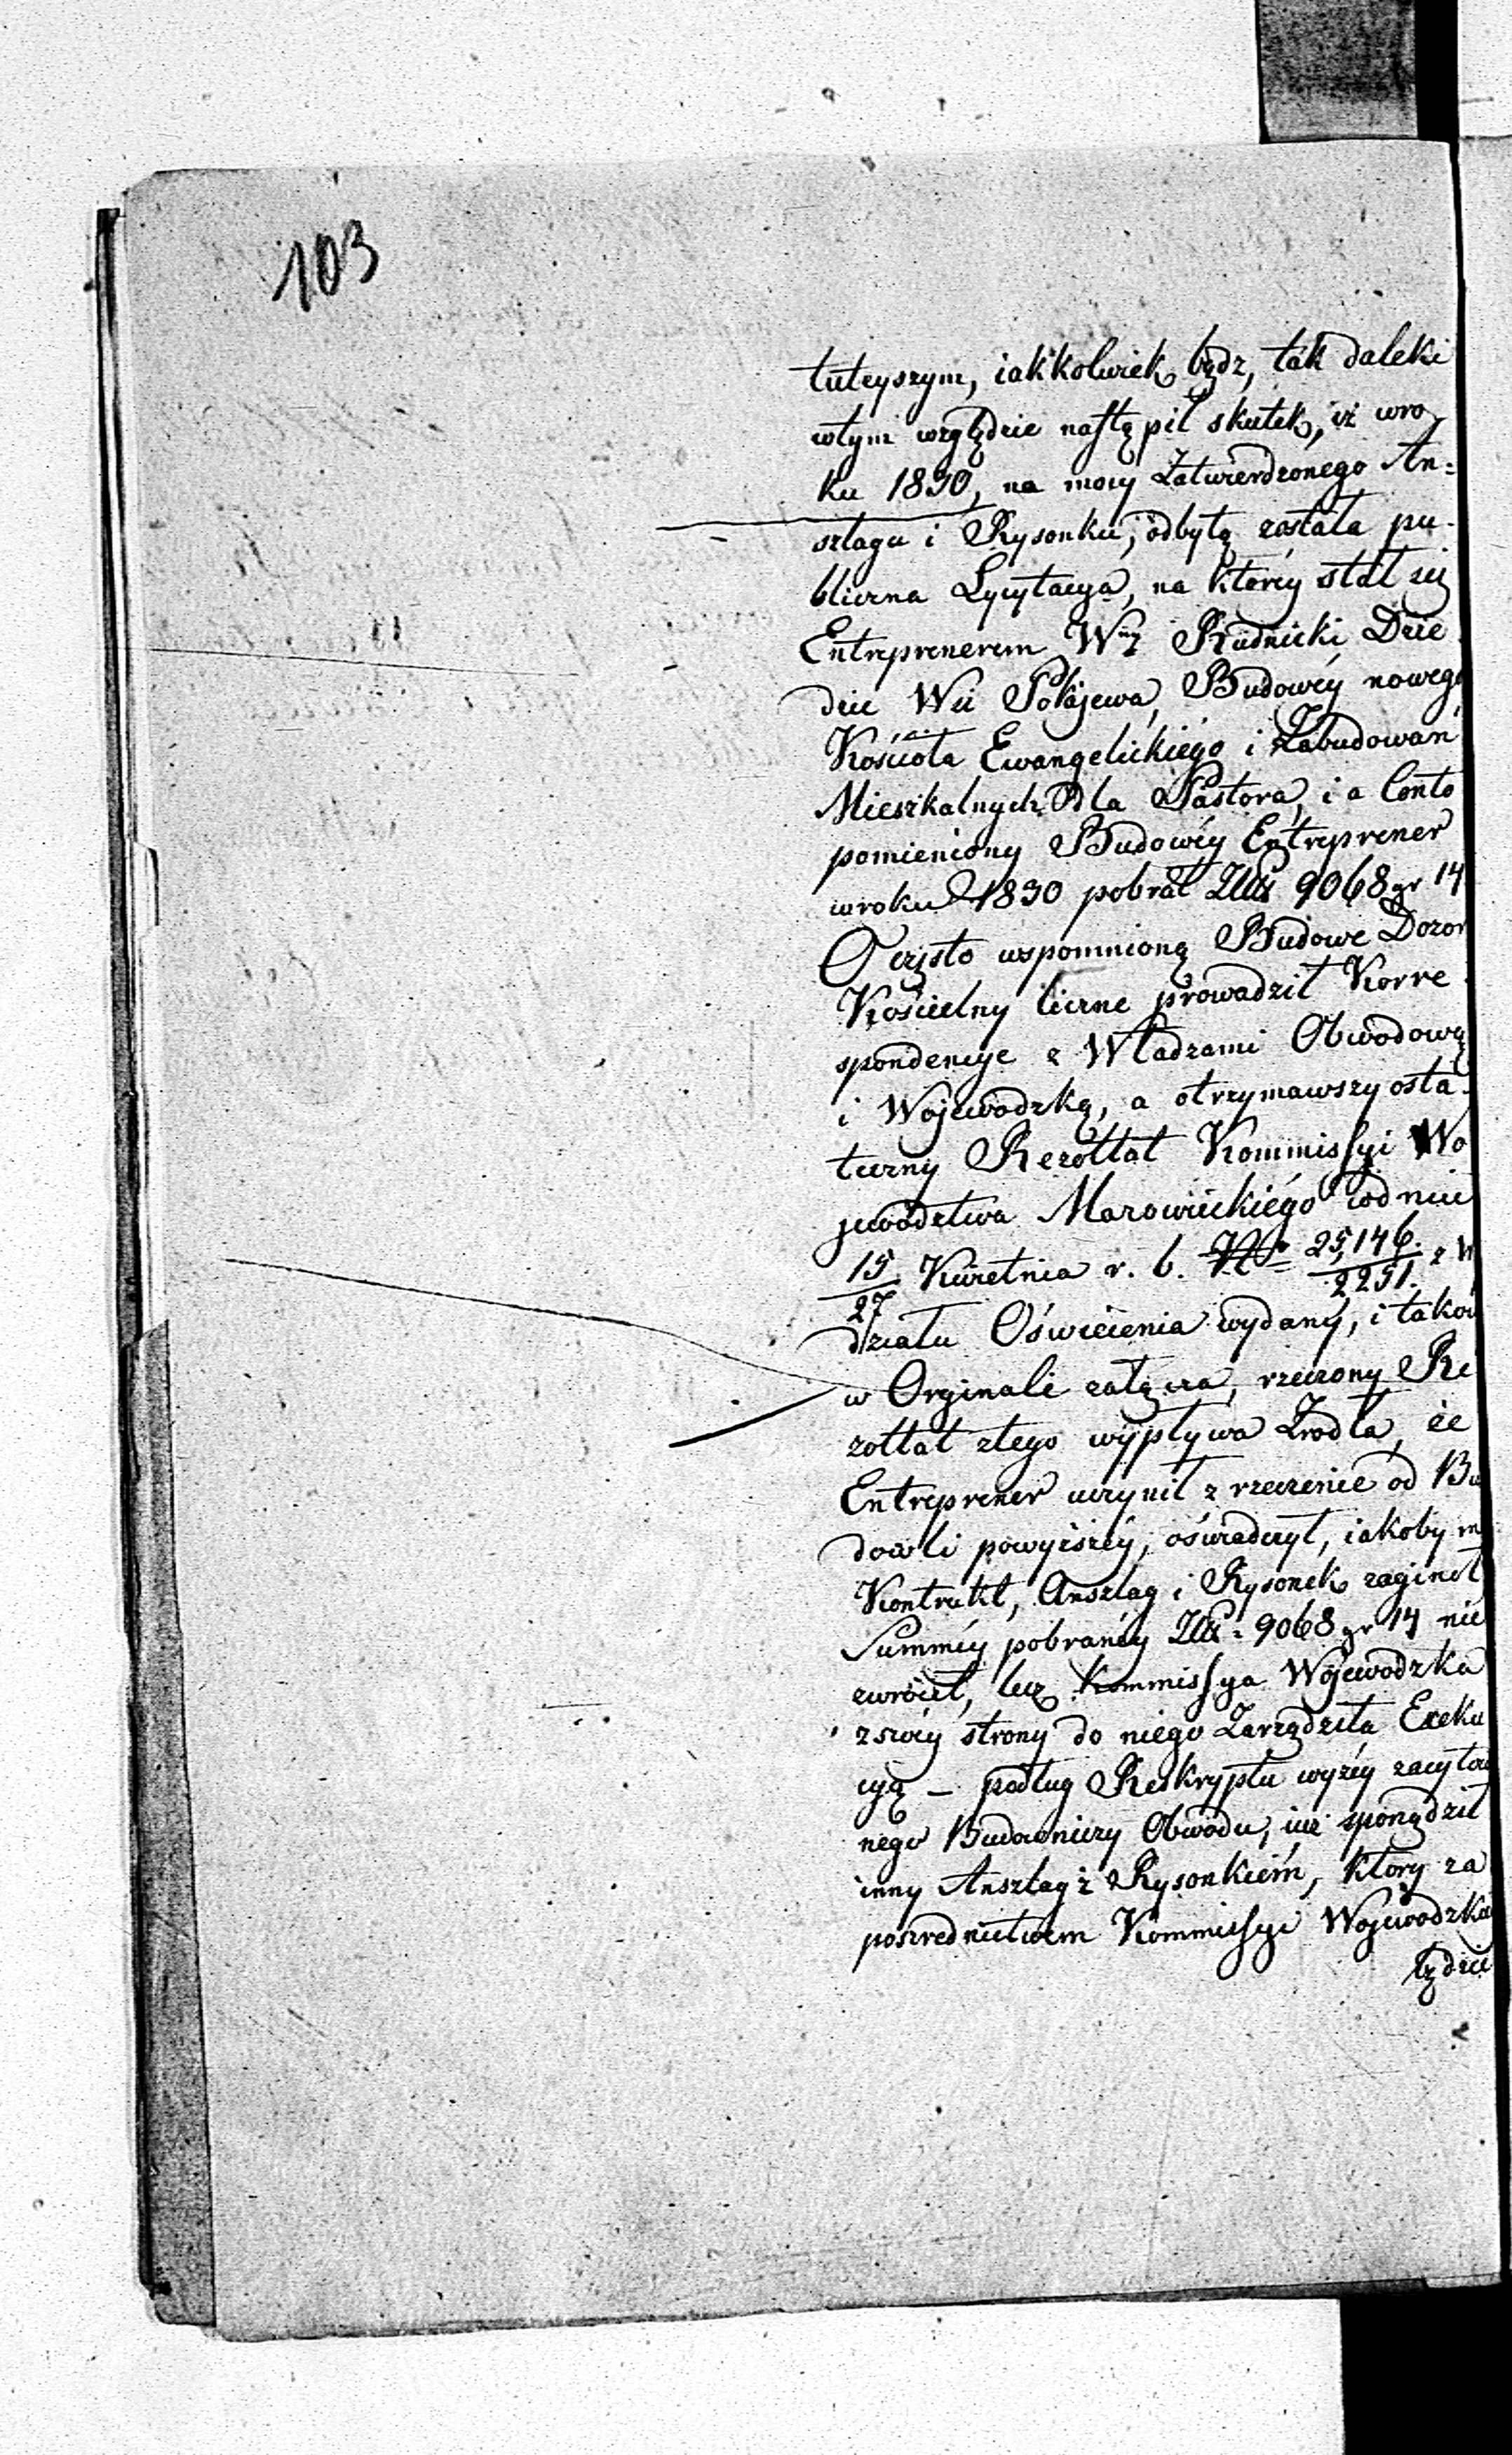 103
tuteyszym, iakkolwiek bądz, tak daleki
wtym względzie nastąpił skutek, iż wro
ku 1830, na mocy Zatwierdzonego An=
szlagu i Rysonku, odbytą została pu-
bliczna Lycytacya, na któréy stał się
Entreprenerem Wny Rudnicki Dzie
dzic Wsi Połajewa, Budowéy nowego
Kościoła Ewangelickiégo i Zabudowań
Mieszkalnych dla Pastora, i a Conto
pomieniony Budowéy Entreprener
wroku 1830 pobrał Złłt 9068 gr 14
O często wspomnioną Budowe Dozor
Kościelny liczne prowadził Korre
spondencye z Władzami Obwodową
i Wojewodzką, a otrzymawszy osta-
teczny Rezoltat Kommissyi Wo
jewodztwa Mazowieckiégo wdniu
15/27 Kwietnia r. b. No 25,146/2251. z W
działu Oświecienia wydany, i takow
w Orginali załącza, rzeczony Re
zoltat ztego wypływa Zrodła, że
Entreprener uczynił z rzeczenie od Bu
dowli powyższéy, oświadczył, iakoby m
Kontrakt, Anszlag i Rysonek zaginoł
Summéy pobranéy Złłt = 9068 gr 14 nie
zwrócił, lecz Kommissya Wojewodzka
zswéy strony do niego Zarządziła Exeku
cyą – podług Reskryptu wyżéy zacytow
nego Budowniczy Obwodu, iuż sporządził
inny Anszlag z Rysonkiém, który za
poszrednictwem Kommissyi Wojewodzka
będzie